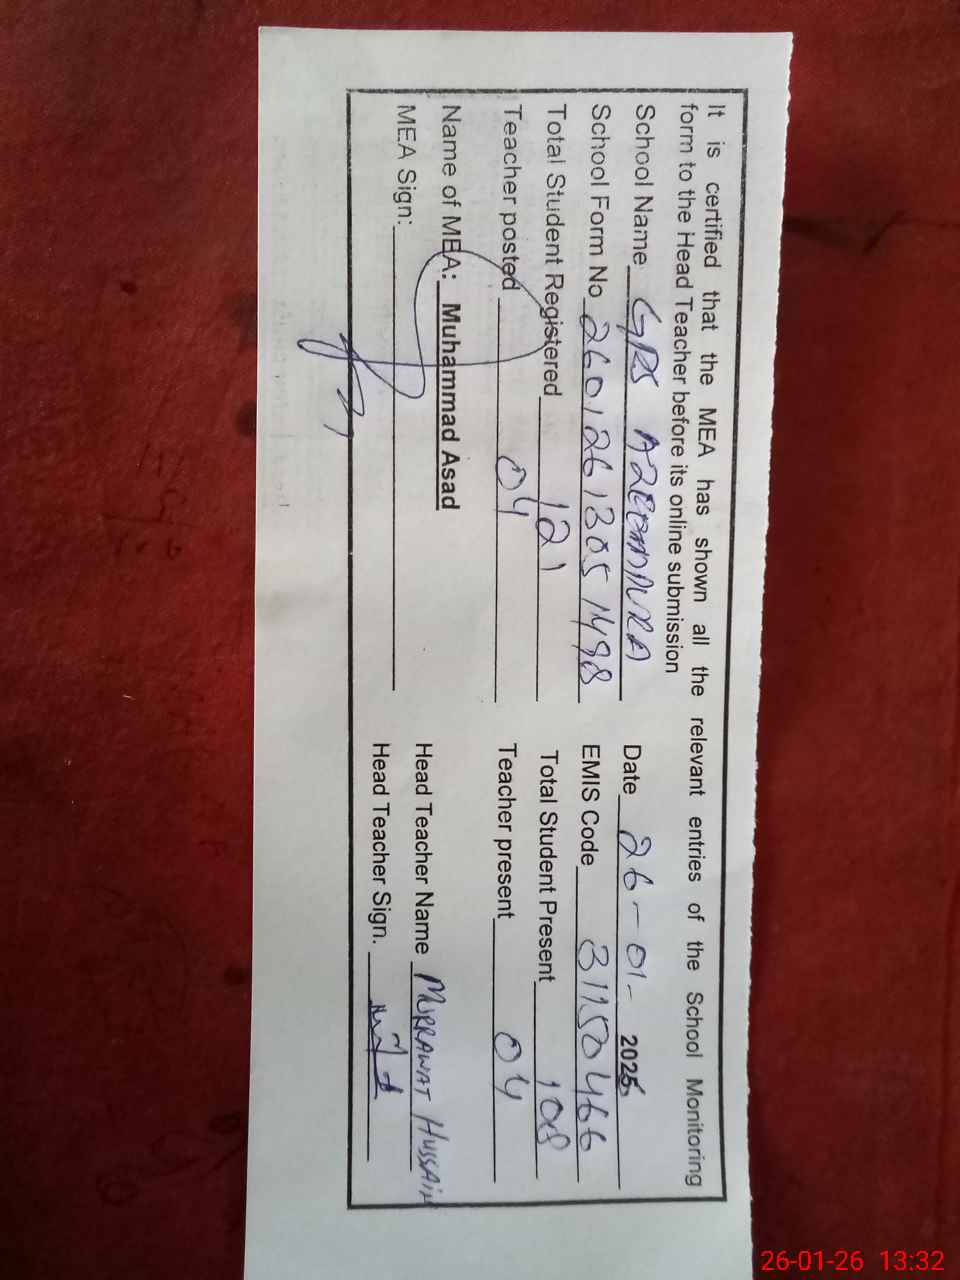 It is certified that the MEA has shown all the relevant entries of the School Monitoring
form to the Head Teacher before its online submission
School Name GPS Date 26-01-2026
School Form No 260126 1305 1498 EMIS Code 31150466
Total Student Registered 121 Total Student Present 108
Teacher posted 04 Teacher present 04
Name of MEA: Muhammad Asad Head Teacher Name MURRAWAT HUSSAIN
MEA Sign: Head Teacher Sign.
26-01-26 13:32